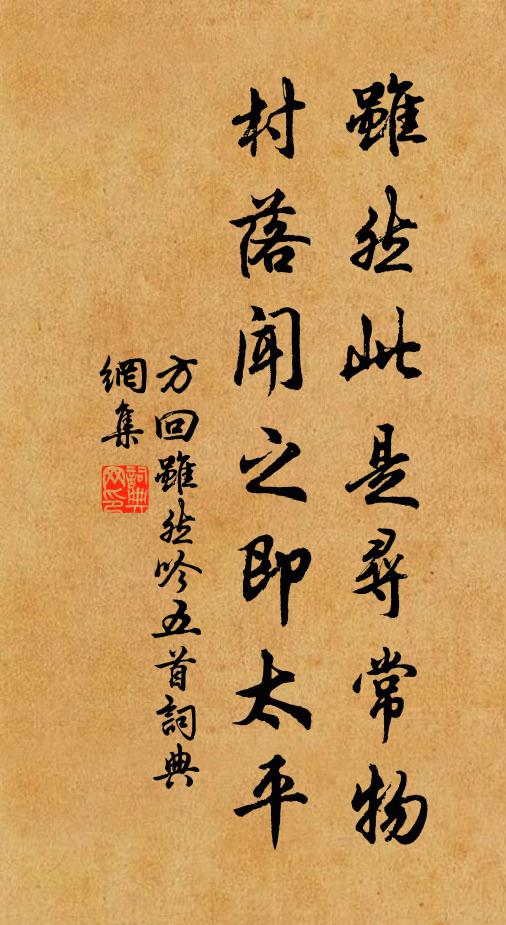 雖然此是尋常物
村落聞之即太平
方回雖然吟五首詞典
網集
詞典
网印